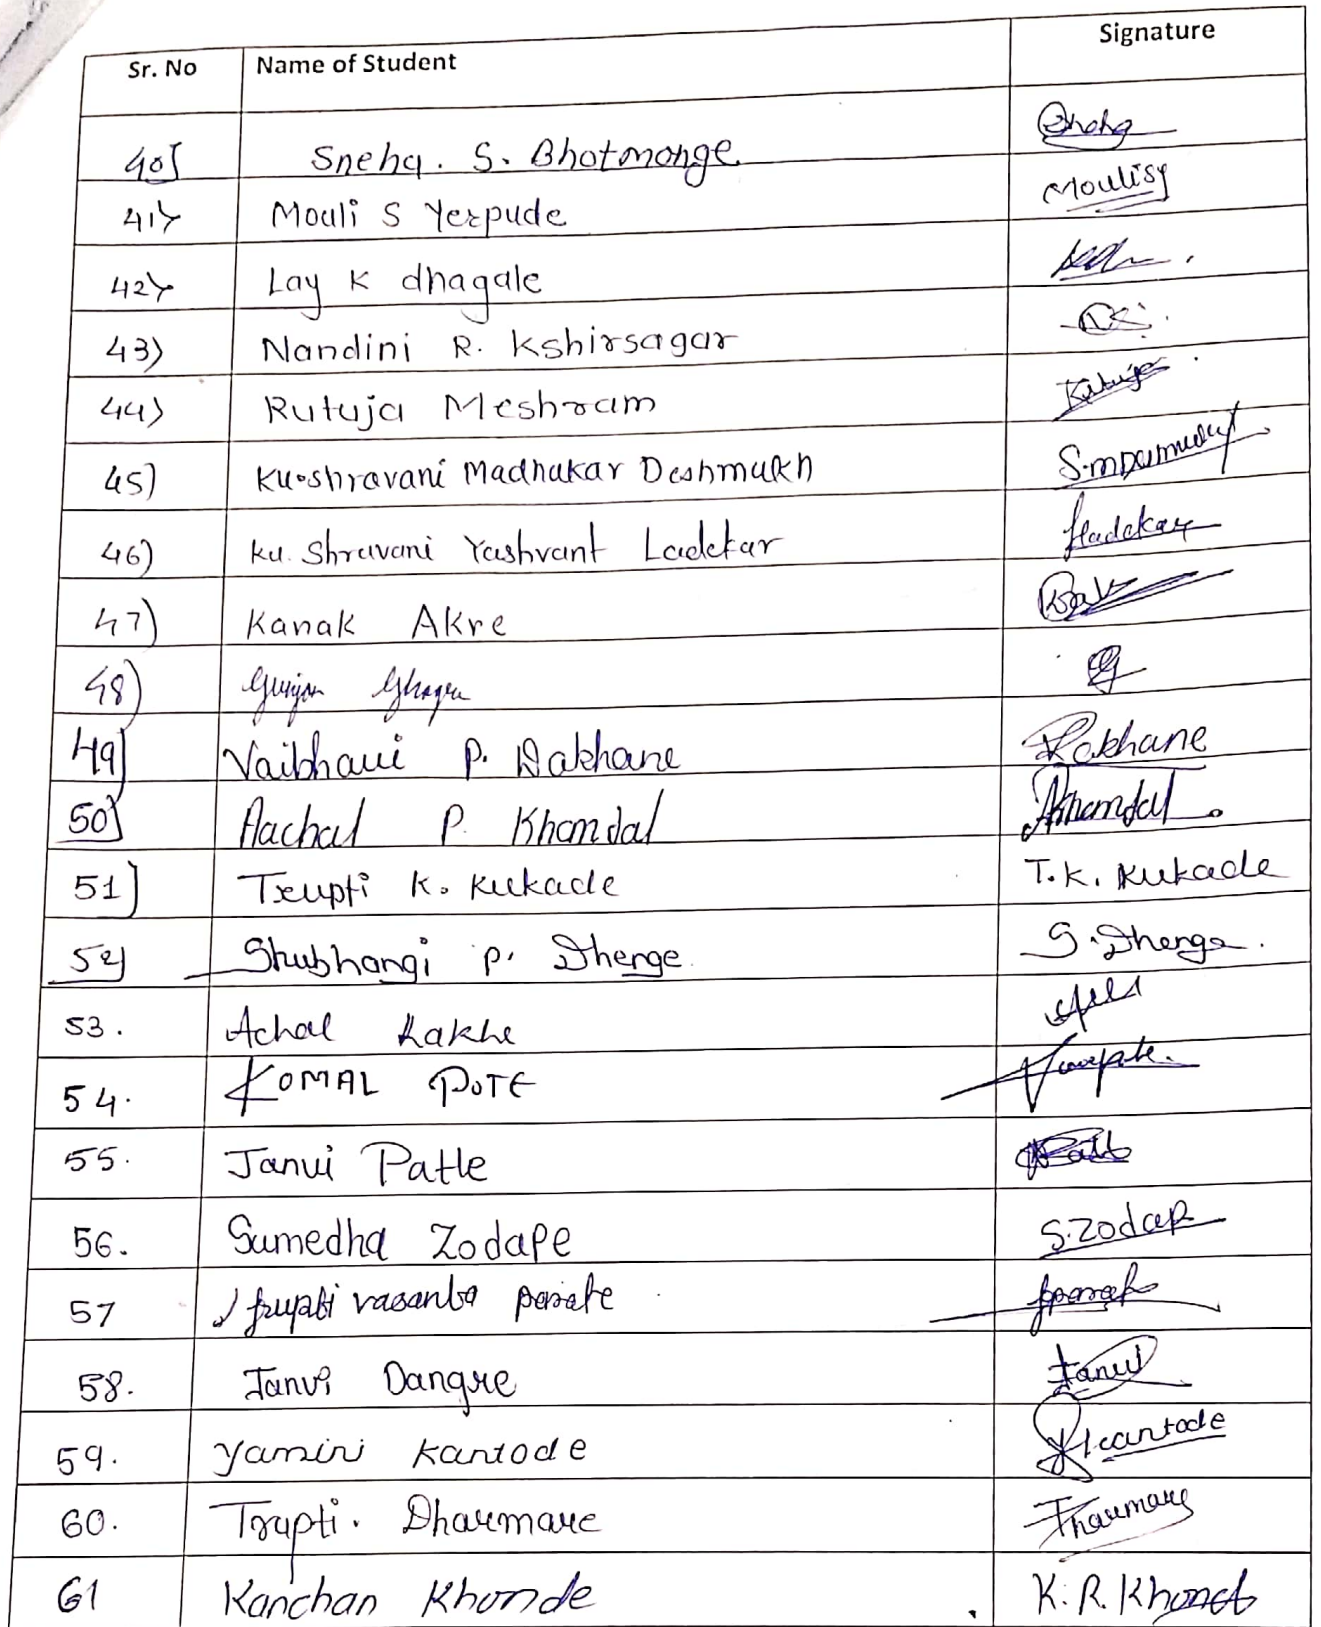 Sr. No Name of Student Signature
40] Sneha. S. Bhotmange
41) Mouli S Yerpude Moulisy
42) Lay K dhagale
43) Nandini R. Kshirsagar
44) Rutuja Meshram
45) Ku. Shravani Madhukar Deshmukh
46) Ku. Shravani Yashvant Ladekar Ladekar
47) Kanak Akre
48) Gunjan
49] Vaibhavi P. Dakhane Dakhane
50] Aachal P. Khandal Khandal
51] Trupti K. Kukade T.K. Kukade
52] Shubhangi P. Dhenge S. Dhenge.
53. Achal Lakhe
54. KOMAL POTE
55. Janvi Patle
56. Sumedha Zodape S.Zodap
57 Trupti vasanta parate
58. Janvi Dangre Janvi
59. Yamini Kantode Kantode
60. Trupti. Dharmare Tharmare
61 Kanchan Khonde K. R. Khonde